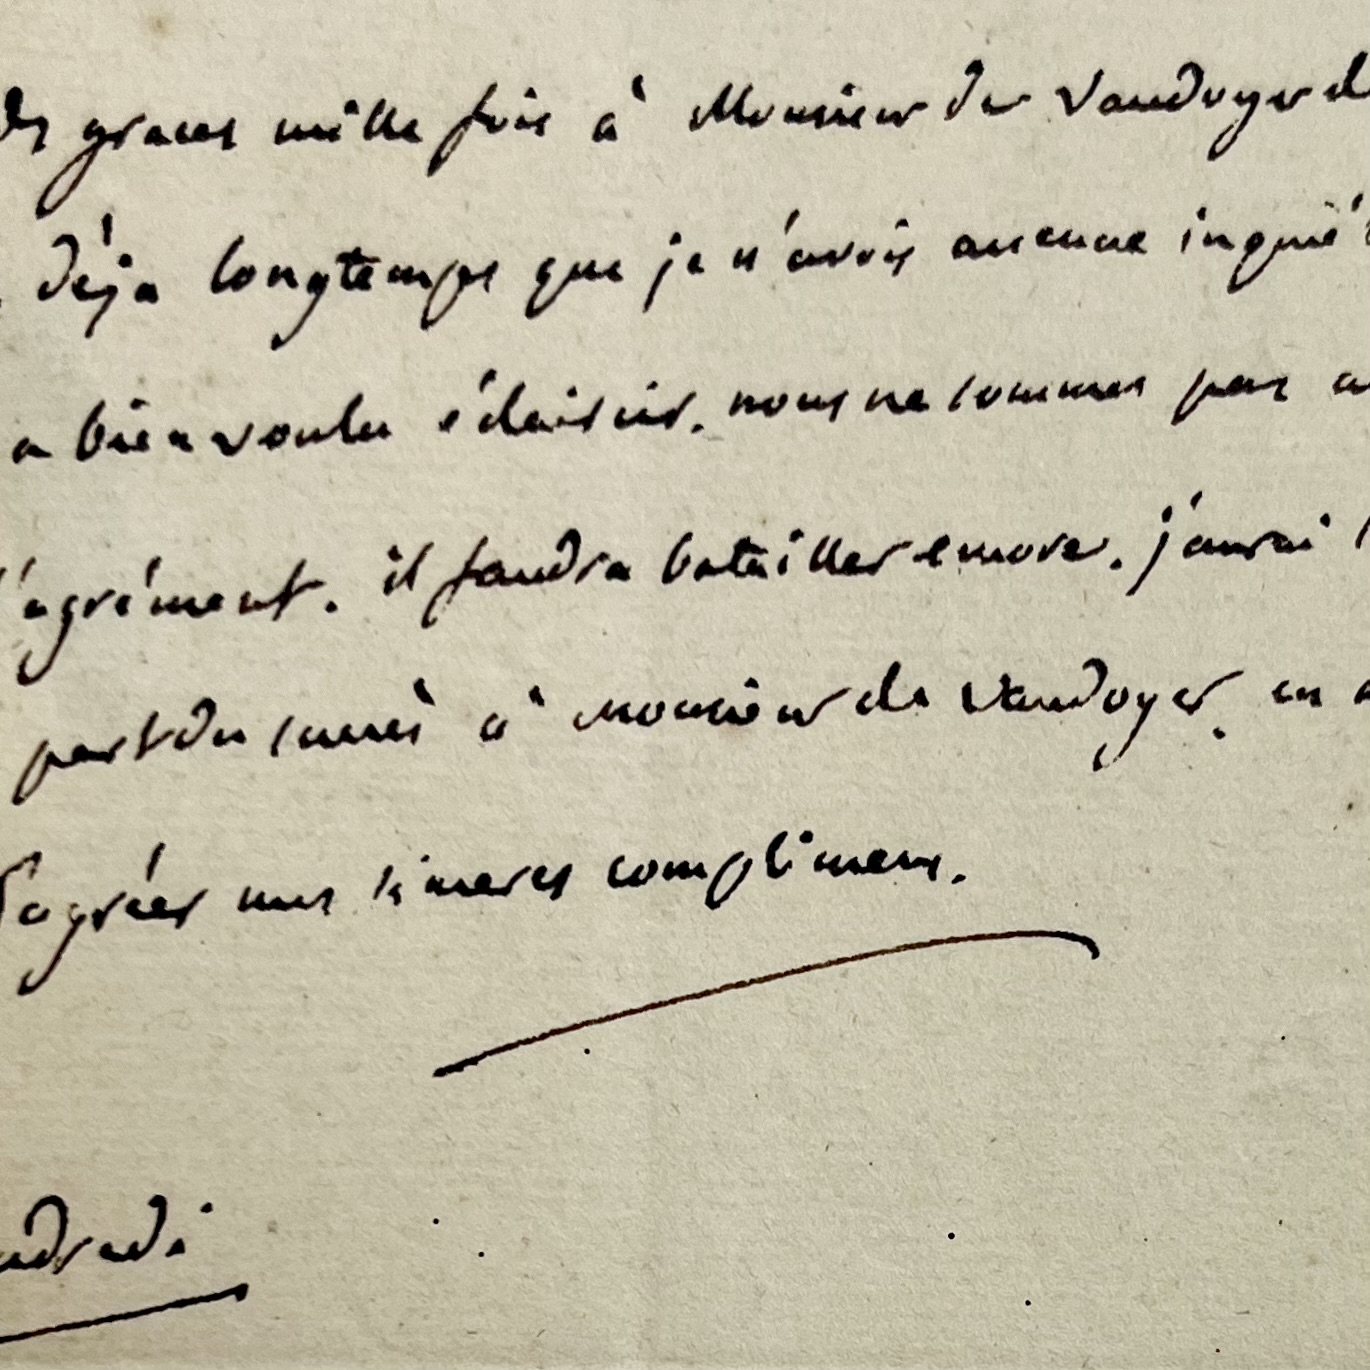 graces mille fois à Monsieur de Vaudoyer d
déja longtemps que je n'avois aucune inquié
a bien voulu éclaircir. nous ne sommes pas a
l'agrément. il faudra batailler encore. j'aurai
part du succès à Monsieur de Vaudoyer. en
d'agréer mes sinceres complimens.
ndredi